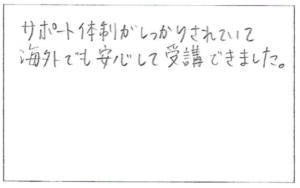 サポート体制がしっかりされていて
海外でも安心して受講できました。